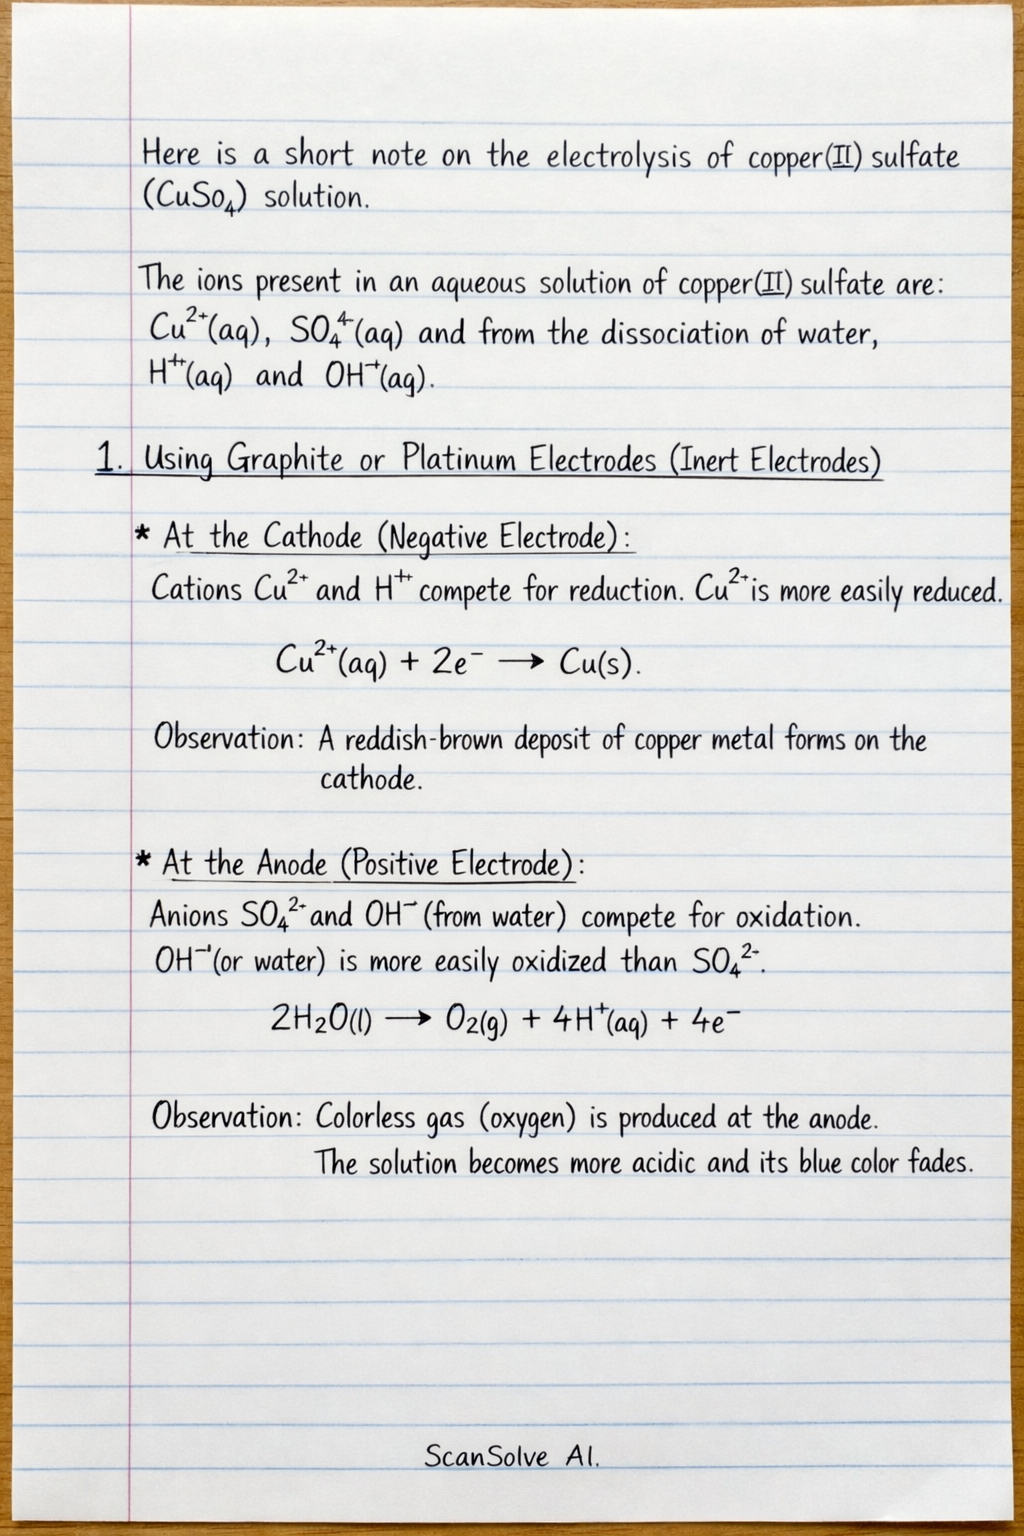 Here is a short note on the electrolysis of copper(II) sulfate
(CuSo₄) solution.
The ions present in an aqueous solution of copper(II) sulfate are:
Cu²⁺(aq), SO₄⁴⁻(aq) and from the dissociation of water,
H⁺⁺(aq) and OH⁻⁺(aq).
1. Using Graphite or Platinum Electrodes (Inert Electrodes)
* At the Cathode (Negative Electrode):
Cations Cu²⁺ and H⁺⁺ compete for reduction. Cu²⁺ is more easily reduced.
Cu²⁺(aq) + 2e⁻ → Cu(s).
Observation: A reddish-brown deposit of copper metal forms on the
cathode.
* At the Anode (Positive Electrode):
Anions SO₄²⁻ and OH⁻ (from water) compete for oxidation.
OH⁻'(or water) is more easily oxidized than SO₄²⁻.
2H₂O(l) → O₂(g) + 4H⁺(aq) + 4e⁻
Observation: Colorless gas (oxygen) is produced at the anode.
The solution becomes more acidic and its blue color fades.
ScanSolve AI.